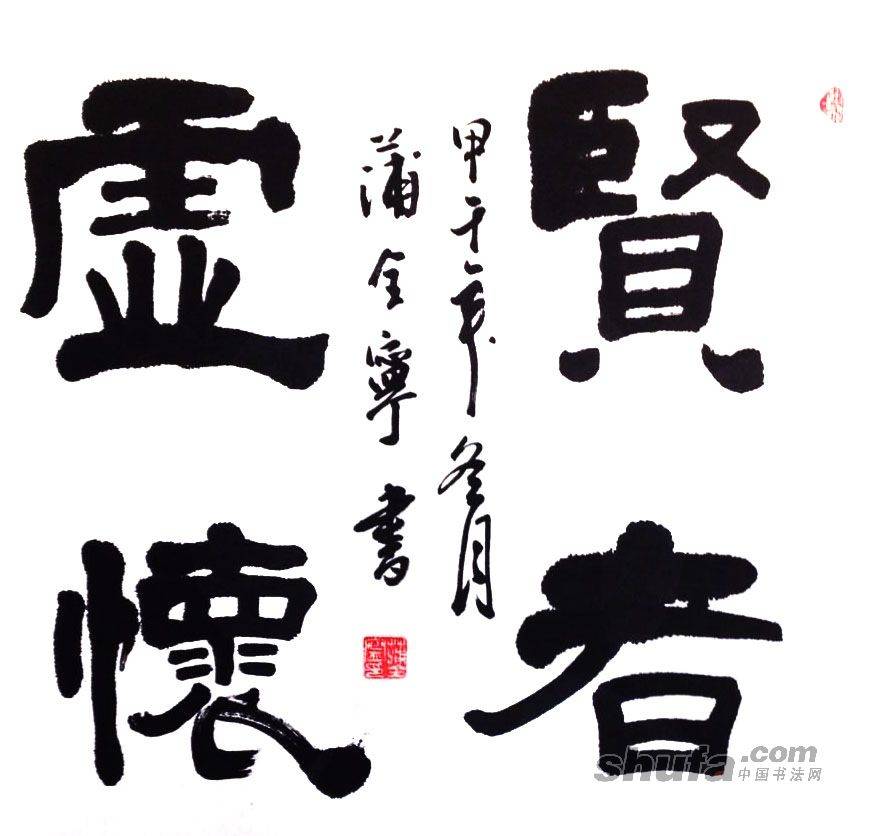 賢者
虛懷
甲午歲冬月
蒲全寧書
shufa.com
中国书法网